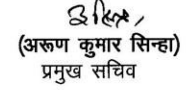 (अरूण कुमार सिन्हा)
प्रमुख सचिव